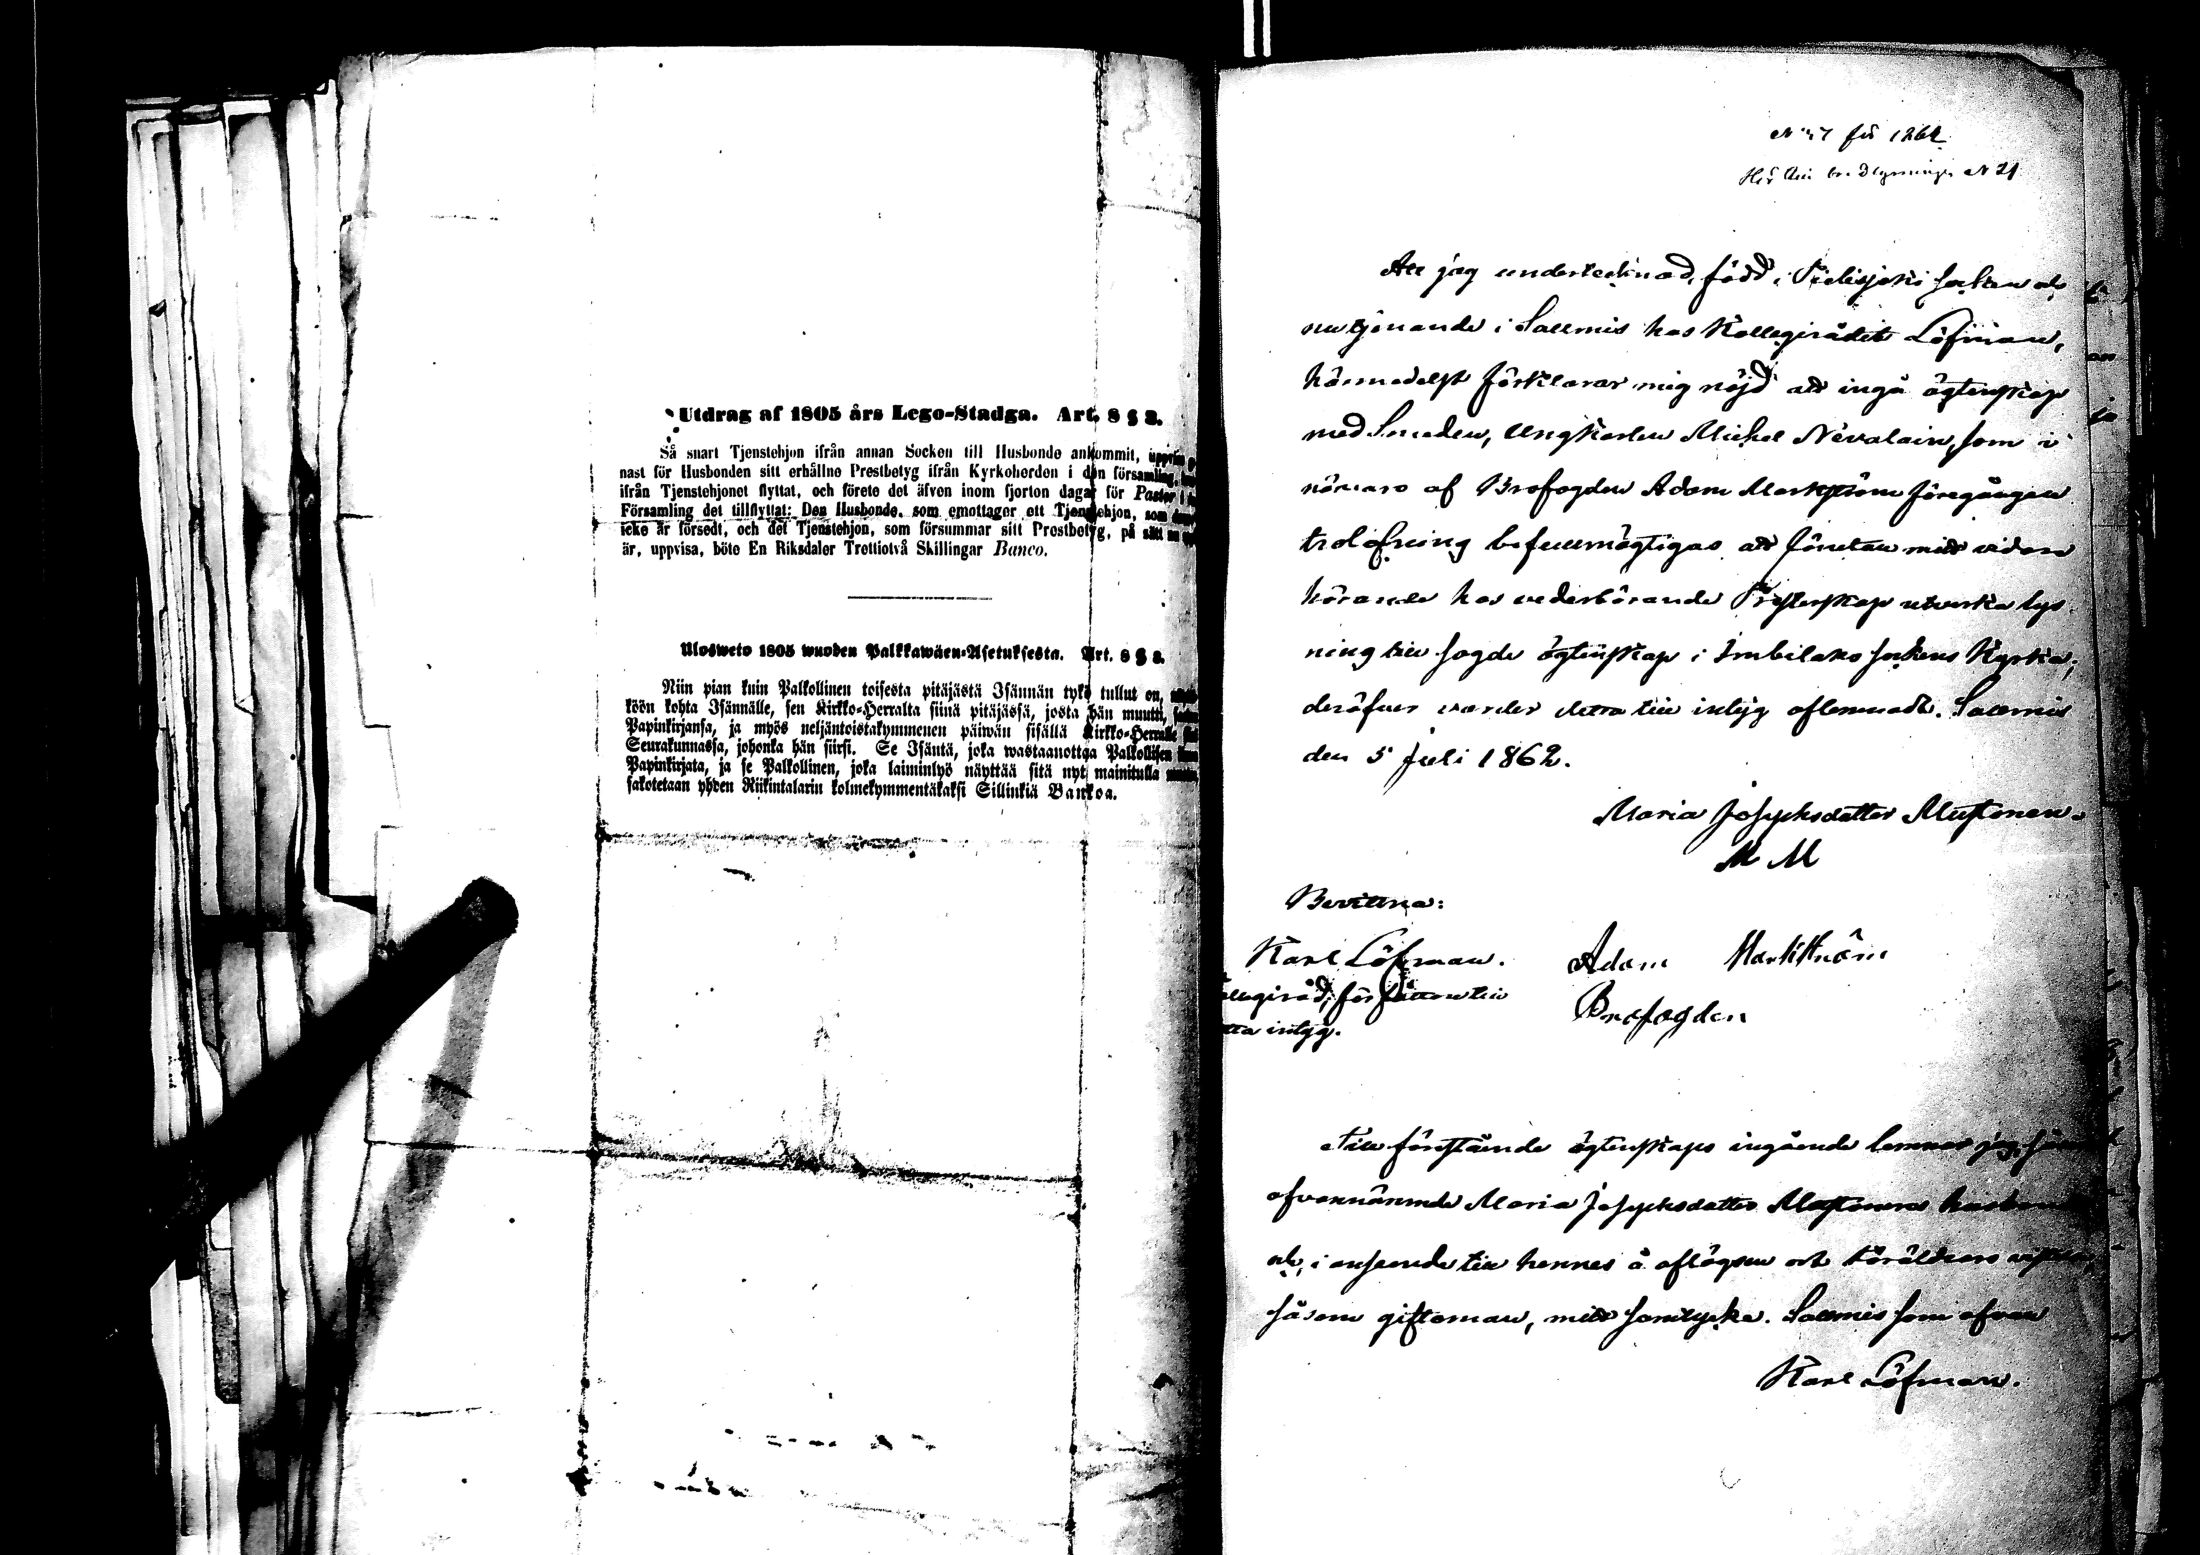 Utdrag af 1805 års Lego-Stadga. Art. 8 § 2.
Så snart Tjenstehjon ifrån annan Socken till Husbonde ankommit,
nast för Husbonden sitt erhållne Prestbetyg ifrån Kyrkoherden i den församling,
ifrån Tjenstehjonet flyttat, och förete det äfven inom fjorton dagar för Pastor i
Församling det tillflyttat: Den Husbonde, som emottager ett Tjenstehjon, som
icke är försedt, och det Tjenstehjon, som försummar sitt Prestbetyg, på sätt
är, uppvisa, böte En Riksdaler Trettiotvå Skillingar Banco.
Ulosweto 1805 wuoden Palkkawäen-Asetuksesta. Art. 8 § 2.
Niin pian kuin Palkollinen toisesta pitäjästä Isännän tykö tullut on,
köön kohta Isännälle, sen Kirkko-Herralta siinä pitäjässä, josta hän muutti,
Papinkirjansa, ja myös neljäntoistakymmenen päiwän sisällä Kirkko-Herralle
Seurakunnassa, johonka hän siirsi. Se Isäntä, joka wastaanottaa Palkollisen
Papinkirjata, ja se Palkollinen, joka laiminlyö näyttää sitä nyt mainitulla
sakotetaan yhden Riikintalarin kolmekymmentäkaksi Sillinkiä Bankoa.
för 1862
N 21
Att jag undertecknad, född i Pielisjoki socken och
nu tjenande i Salmis hos Kollegirådet Löfman,
härmedelst förklarar mig nöjd att ingå ägtenskap
med Smeden, Ungkarlen Michel Nevalain, som i
närvaro af Brofogden Adam Markström föregången
trolofning befullmägtigas att företen mitt vidare
hörande hos vederbörande Presterskap utverka lys
ning till sagde ägtenskap i Imbilaks sockens Kyrka;
deröfver varder detta till intyg aflemnadt. Salmis
den 5 Juli 1862.
Maria Josephsdotter Mustonen.
M M
Bevittna:
Karl Löfman. Adam Markström
llegiråd, författare till Brofogden
tta intyg.
Till förestående ägtenskaps ingående lemnar jag,
ofvannämnde Maria Josephsdotter Mustonens
och, i anseende till hennes å aflägsen ort föräldrars
såsom giftoman, mitt samtycke. Salmis som ofvan
Karl Löfman.